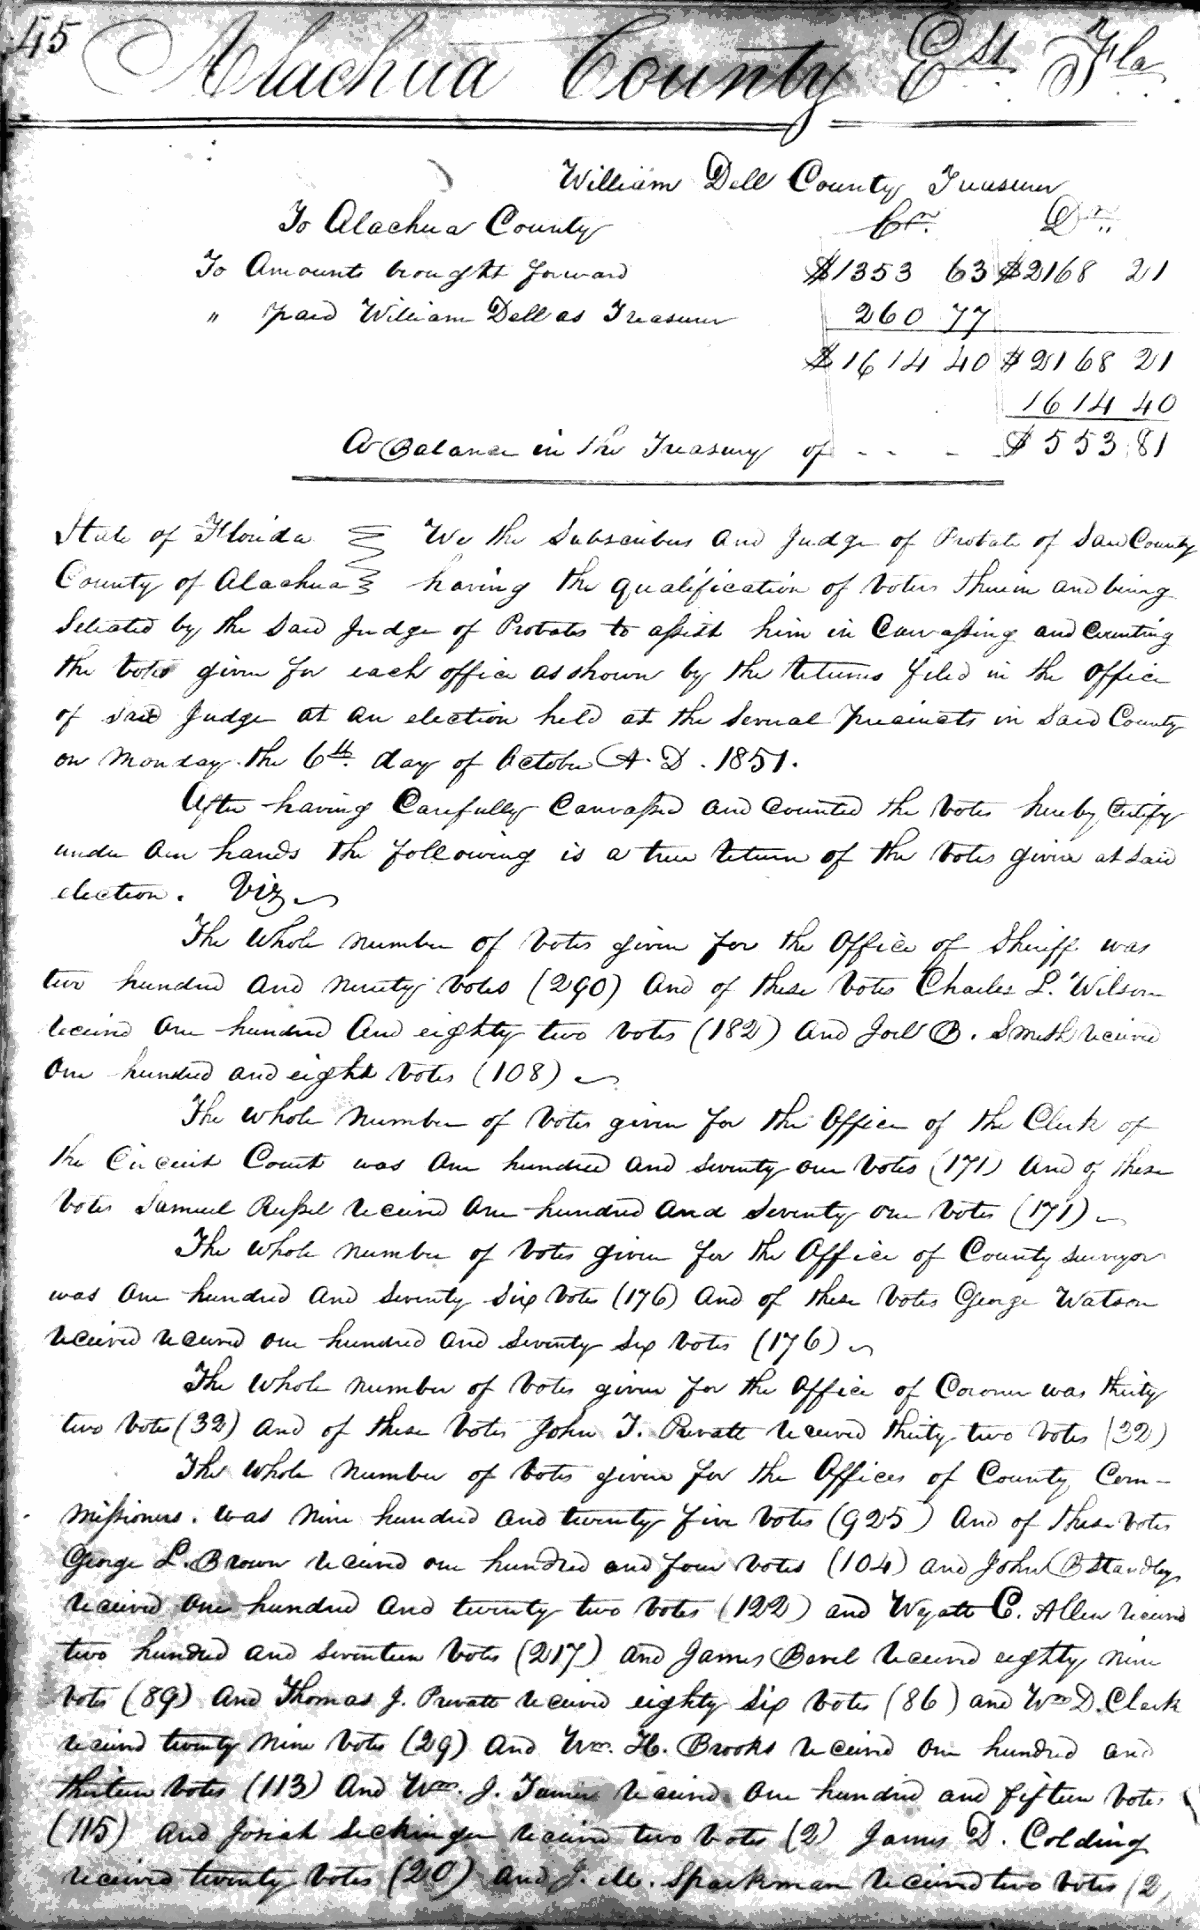 45 Alachua County Est. Fla.
William Dell County Treasurer
To Alachua County Cr. Dr.
To Amounts brought forward $1353 63 $2168 21
" paid William Dell as Treasurer 260 77
$1614 40 $2168 21
1614 40
A Balance in the Treasury of - - - $553.81
State of Florida We the Subscribers and Judge of Probate of Said County
County of Alachua having the qualification of Voters therein and being
Selected by the Said Judge of Probates to assist him in Canvassing and Counting
the Votes given for each office as shown by the Returns filed in the office
of said Judge at an election held at the Several precincts in Said County
on Monday the 6th day of October A. D. 1851.
After having Carefully Canvassed and Counted the Votes hereby Certify
under our hands the following is a true Return of the Votes given at Said
election. Viz
The Whole number of Votes given for the Office of Sheriff was
two hundred and ninety Votes (290) And of these Votes Charles L. Wilson
Received One hundred And eighty two Votes (182) And Joel B. Smith Received
One hundred and eight Votes (108)
The whole Number of Votes given for the Office of the Clerk of
the Circuit Court was One hundred and Seventy one Votes (171) And of these
Votes Samuel Russel Received One hundred and Seventy one Votes (171)
The whole number of Votes given for the Office of County Surveyor
was One hundred and Seventy Six Votes (176) And of these Votes George Watson
Received Received one hundred and Seventy Six Votes (176)
The Whole number of Votes given for the Office of Coroner was thirty
two Votes (32) And of these Votes John T. Prevatt Received thirty two Votes (32)
The whole Number of Votes given for the Offices of County Com-
missioners. was Nine hundred and twenty five Votes (925) And of these Votes
George L. Brown Received one hundred and four Votes (104) and John B Standley
Received One hundred And twenty two Votes (122) and Wyatt C. Allen Received
two hundred and Seventeen Votes (217) and James Bevel Received eighty nine
Votes (89) And Thomas J. Prevatt Received eighty Six Votes (86) and Wm D. Clark
Received twenty Nine Votes (29) And Wm. H. Brooks Received One hundred and
thirteen Votes (113) And Wm. J. Turner Received One hundred and fifteen Votes
(115) And Josiah Seckinger Received two Votes (2) James D. Colding
Received twenty Votes (20) And J. M. Sparkman Received two Votes (2)